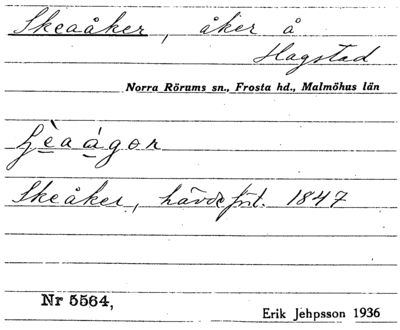 Skeaåker, åker å
Hagstad
Norra Rörums sn., Frosta hd., Malmöhus län
Skeåker, hävdefört. 1847
Nr 5564,
Erik Jehpsson 1936